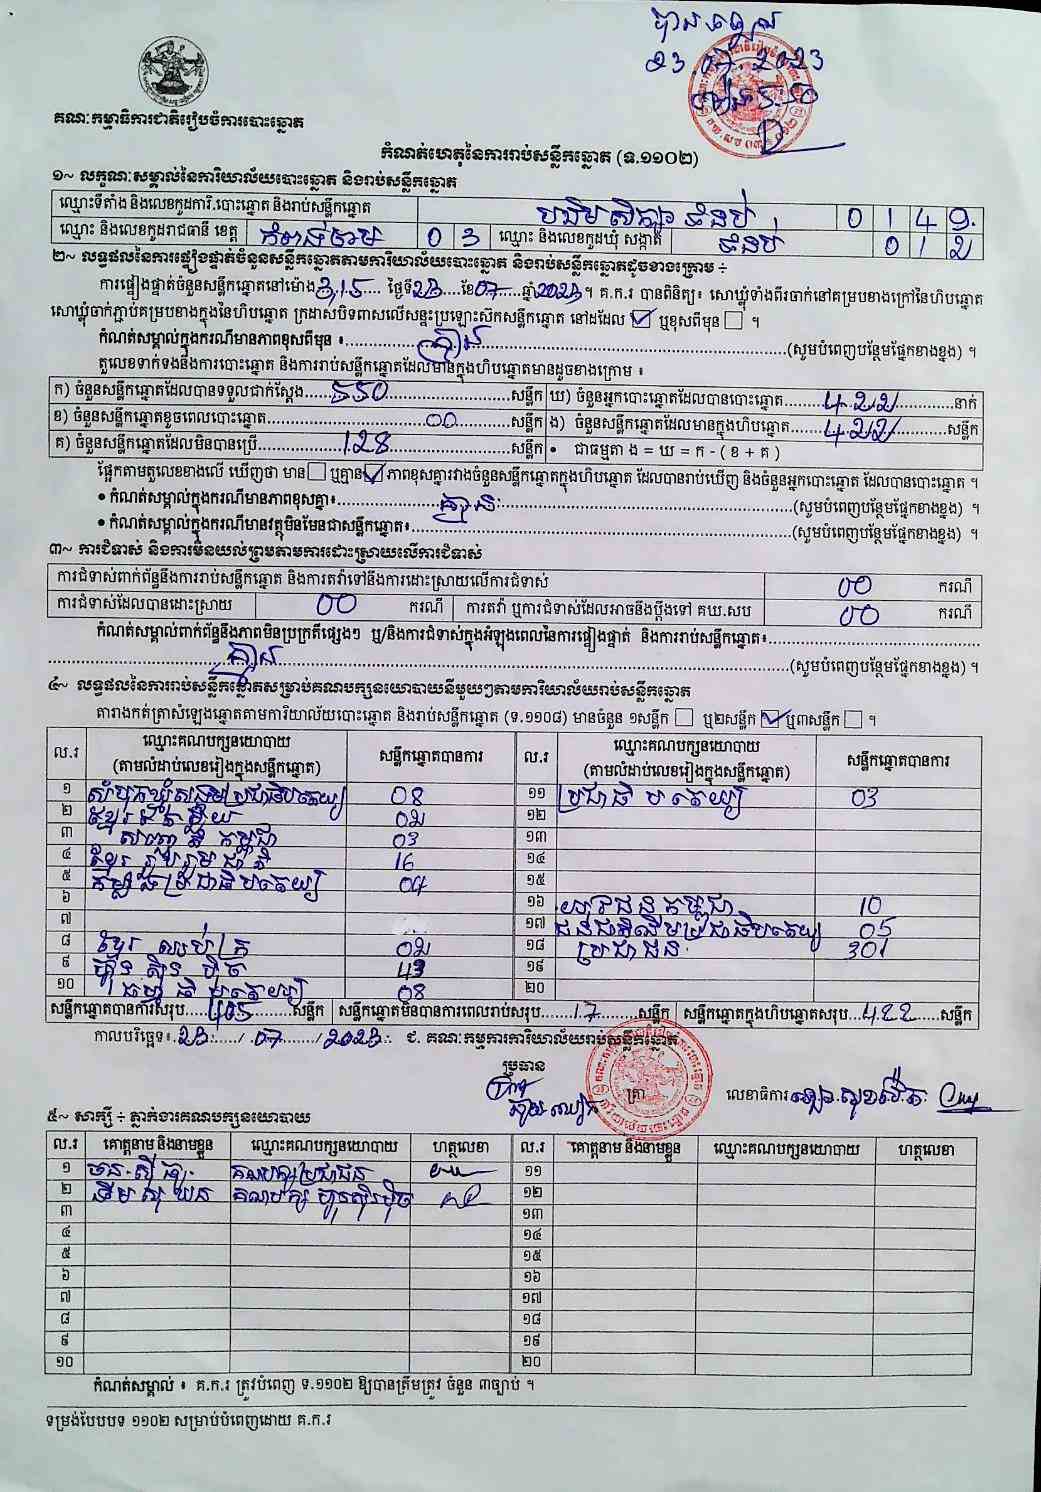 បានឃើញ
23.07.2023
គណៈកម្មាធិការជាតិរៀបចំការបោះឆ្នោត
កំណត់ហេតុនៃការរាប់សន្លឹកឆ្នោត (ទ.១១០២)
១~ លក្ខណៈសម្គាល់នៃការិយាល័យបោះឆ្នោត និងរាប់សន្លឹកឆ្នោត
ឈ្មោះទីតាំង និងលេខកូដការិ.បោះឆ្នោត និងរាប់សន្លឹកឆ្នោត បឋមសិក្សា ទំនប់ 0 1 4 9
ឈ្មោះ និងលេខកូដរាជធានី ខេត្ត កំពង់ចាម 0 3 ឈ្មោះ និងលេខកូដឃុំ សង្កាត់ ទំនប់ 0 1 2
២~ លទ្ធផលនៃការផ្ទៀងផ្ទាត់ចំនួនសន្លឹកឆ្នោតតាមការិយាល័យបោះឆ្នោត និងរាប់សន្លឹកឆ្នោតដូចខាងក្រោម ÷
ការផ្ទៀងផ្ទាត់ចំនួនសន្លឹកឆ្នោតនៅម៉ោង 3,15 ថ្ងៃទី 23 ខែ 07 ឆ្នាំ 2023 ។ គ.ក.រ បានពិនិត្យ៖ សោឃ្លុំទាំងពីរចាក់នៅគម្របខាងក្រៅនៃហិបឆ្នោត
សោឃ្លុំចាក់ភ្ជាប់គម្របខាងក្នុងនៃហិបឆ្នោត ក្រដាសបិទពាសលើសន្ទះប្រឡោះស៊កសន្លឹកឆ្នោត នៅដដែល ☑ ឬខុសពីមុន ☐ ។
កំណត់សម្គាល់ក្នុងករណីមានភាពខុសពីមុន ៖ គ្មាន (សូមបំពេញបន្ថែមផ្នែកខាងខ្នង) ។
តួលេខទាក់ទងនឹងការបោះឆ្នោត និងការរាប់សន្លឹកឆ្នោតដែលមានក្នុងហិបឆ្នោតមានដូចខាងក្រោម ៖
ក) ចំនួនសន្លឹកឆ្នោតដែលបានទទួលជាក់ស្តែង 550 សន្លឹក ឃ) ចំនួនអ្នកបោះឆ្នោតដែលបានបោះឆ្នោត 422 នាក់
ខ) ចំនួនសន្លឹកឆ្នោតខូចពេលបោះឆ្នោត 00 សន្លឹក ង) ចំនួនសន្លឹកឆ្នោតដែលមានក្នុងហិបឆ្នោត 422 សន្លឹក
គ) ចំនួនសន្លឹកឆ្នោតដែលមិនបានប្រើ 128 សន្លឹក • ជាធម្មតា ង = ឃ = ក - ( ខ + គ )
ផ្អែកតាមតួលេខខាងលើ ឃើញថា មាន ☐ ឬគ្មាន ☑ ភាពខុសគ្នារវាងចំនួនសន្លឹកឆ្នោតក្នុងហិបឆ្នោត ដែលបានរាប់ឃើញ និងចំនួនអ្នកបោះឆ្នោត ដែលបានបោះឆ្នោត ។
• កំណត់សម្គាល់ក្នុងករណីមានភាពខុសគ្នា៖ គ្មាន (សូមបំពេញបន្ថែមផ្នែកខាងខ្នង) ។
• កំណត់សម្គាល់ក្នុងករណីមានវត្ថុមិនមែនជាសន្លឹកឆ្នោត៖ (សូមបំពេញបន្ថែមផ្នែកខាងខ្នង) ។
៣~ ការជំទាស់ និងការមិនយល់ព្រមតាមការដោះស្រាយលើការជំទាស់
ការជំទាស់ពាក់ព័ន្ធនឹងការរាប់សន្លឹកឆ្នោត និងការតវ៉ាទៅនឹងការដោះស្រាយលើការជំទាស់ 00 ករណី
ការជំទាស់ដែលបានដោះស្រាយ 00 ករណី ការតវ៉ា ឬការជំទាស់ដែលអាចនឹងប្តឹងទៅ គឃ.សប 00 ករណី
កំណត់សម្គាល់ពាក់ព័ន្ធនឹងភាពមិនប្រក្រតីផ្សេងៗ ឬ/និងការជំទាស់ក្នុងអំឡុងពេលនៃការផ្ទៀងផ្ទាត់ និងការរាប់សន្លឹកឆ្នោត៖
គ្មាន (សូមបំពេញបន្ថែមផ្នែកខាងខ្នង) ។
៤~ លទ្ធផលនៃការរាប់សន្លឹកឆ្នោតសម្រាប់គណបក្សនយោបាយនីមួយៗតាមការិយាល័យរាប់សន្លឹកឆ្នោត
តារាងកត់ត្រាសំឡេងឆ្នោតតាមការិយាល័យបោះឆ្នោត និងរាប់សន្លឹកឆ្នោត (ទ.១១០៨) មានចំនួន ១សន្លឹក ☐ ឬ២សន្លឹក ☑ ឬ៣សន្លឹក ☐ ។
ល.រ ឈ្មោះគណបក្សនយោបាយ (តាមលំដាប់លេខរៀងក្នុងសន្លឹកឆ្នោត) សន្លឹកឆ្នោតបានការ ល.រ ឈ្មោះគណបក្សនយោបាយ (តាមលំដាប់លេខរៀងក្នុងសន្លឹកឆ្នោត) សន្លឹកឆ្នោតបានការ
១ សំបុកឃ្មុំសង្គមប្រជាធិបតេយ្យ 08 ១១ ប្រជាធិបតេយ្យ 03
២ ខ្មែរ 02 ១២
៣ កម្ពុជា 03 ១៣
៤ ខ្មែររួបរួមជាតិ 16 ១៤
៥ កម្លាំងប្រជាធិបតេយ្យ 04 ១៥
៦ ១៦ យុវជនកម្ពុជា 10
៧ ១៧ ជនជាតិដើមប្រជាធិបតេយ្យ 05
៨ ខ្មែរ ឈប់ក្រ 02 ១៨ ប្រជាជន 301
៩ ហ៊្វុនស៊ិនប៉ិច 43 ១៩
១០ ធម្មាធិបតេយ្យ 08 ២០
សន្លឹកឆ្នោតបានការសរុប 405 សន្លឹក សន្លឹកឆ្នោតមិនបានការពេលរាប់សរុប 17 សន្លឹក សន្លឹកឆ្នោតក្នុងហិបឆ្នោតសរុប 422 សន្លឹក
កាលបរិច្ឆេទ៖ 23 / 07 / 2023 ជ. គណៈកម្មការការិយាល័យរាប់សន្លឹកឆ្នោត
ប្រធាន ត្រា លេខាធិការ
៥~ សាក្សី ÷ ភ្នាក់ងារគណបក្សនយោបាយ
ល.រ គោត្តនាម និងនាមខ្លួន ឈ្មោះគណបក្សនយោបាយ ហត្ថលេខា ល.រ គោត្តនាម និងនាមខ្លួន ឈ្មោះគណបក្សនយោបាយ ហត្ថលេខា
១ គណបក្សប្រជាជន ១១
២ គណបក្ស ហ៊្វុនស៊ិនប៉ិច ១២
៣ ១៣
៤ ១៤
៥ ១៥
៦ ១៦
៧ ១៧
៨ ១៨
៩ ១៩
១០ ២០
កំណត់សម្គាល់ ៖ គ.ក.រ ត្រូវបំពេញ ទ.១១០២ ឱ្យបានត្រឹមត្រូវ ចំនួន ៣ច្បាប់ ។
ទម្រង់បែបបទ ១១០២ សម្រាប់បំពេញដោយ គ.ក.រ